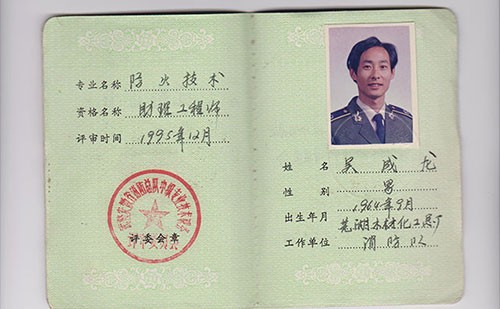 专业名称 防火技术
资格名称 助理工程师
评审时间 1995年12月
评委会章
姓名 吴成龙
性别 男
出生年月 1964年9月
工作单位 芜湖木材化工厂
消防队